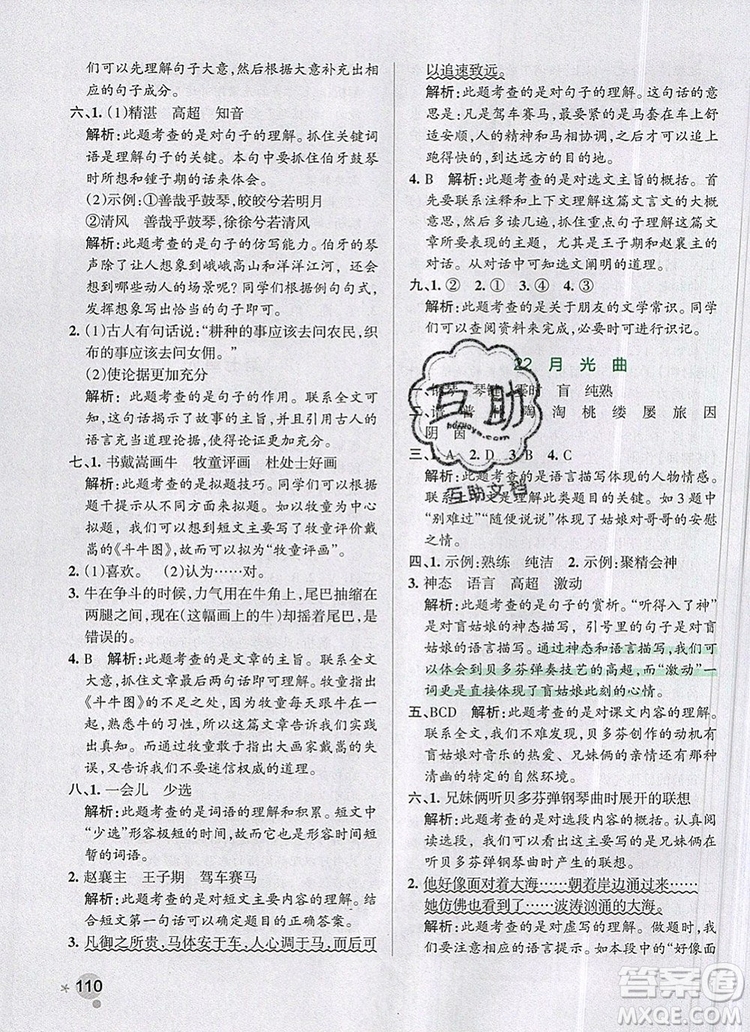 们可以先理解句子大意,然后根据大意补充出相应
的句子成分。
六、1.(1)精湛　高超　知音
解析:此题考查的是对句子的理解。抓住关键词
语是理解句子的关键。本句中要抓住伯牙鼓琴
时的心情和锺子期的话来体会。
(2)示例:①善哉乎鼓琴,皎皎兮若明月
②清风　善哉乎鼓琴,徐徐兮若清风
解析:此题考查的是句子的仿写能力。伯牙的琴
声除了让人想象到峨峨高山和洋洋江河,还可以
想象到哪些动人的情景呢?同学们根据想象到
的场景写出恰当的句子即可。
2.(1)古人有句话说:“耕种的事应该去问农民,织
布的事应该去问女佣。”
(2)使论据更加充分
解析:此题考查的是对内容的理解。联系全文可
知,这句话揭示了故事的主旨,并且引用古人的
语言充当论据,使论证更加充分。
七、1.书戴嵩画牛　牧童评画　杜处士好画
解析:此题考查的是拟题技巧。同学们可以根据
题干提示从不同方面来拟题。如以牧童为中心
拟题,可以根据短文主要写了牧童评价戴
嵩的《斗牛图》,故而可以拟为“牧童评画”。
2.(1)喜欢。　(2)认为……对。
3.牛在争斗的时候,力气用在牛角上,尾巴紧缩在
两腿之间,现在(这幅画上的牛)却摇着尾巴,是
错误的。
4.B　解析:此题考查的是文章的主旨。联系全文
可知,文章的最后两句话阐明中心。牧童敢批评
《斗牛图》是因为《斗牛图》的画法与实际不符,
他熟悉牛的习性,所以这篇文章告诉我们实践出
真知的道理。同时也通过牧童敢于批评戴嵩的
失误,告诉我们不要迷信权威的道理。
八、1.一会儿　少选
解析:此题考查的是词语的理解和积累。短文中
“少选”形容极短的时间,故而填写形容时间短
暂的词语。
2.赵襄主　王子期　驾车赛马
解析:此题考查的是短文主要内容的理解。根据
短文的第一句话即可确定题目的正确答案。
3.凡御之所贵,马体安于车,人心调于马,而后可
110
以追速致远。
解析:此题考查的是对句子的理解。这句话的意
思是:凡是驾车赛马,最要紧的是马套在车上合
适安定,人的精神与马相协调,之后才可以加速,
跑得快,达到致远的目的。
4.B　解析:此题考查的是对选文主旨的概括。首
先要联系注释和上下文理解这篇文言文的大概
意思,然后多读几遍,抓住重点句子理解这篇文
章所要表现的主题,尤其是王子期和赵襄主的
对话。从对话中选文阐明的道理。
九、1.②　2.①　3.④　4.③
解析:此题考查的是关于朋友的文学常识。同学
们可以查阅资料来完成,必要时进行识记。
22　月光曲
琴键　霎时　盲　纯熟
陶　淘　桃　缕　屡　旅　因
阴　茵
三、1.A　2.D　3.B　4.C
解析:此题考查的是语言描写体现的人物情感。
联系全文理解是解决此类题目的关键。如3题中
“别难过”“随便说说”体现了姑娘对哥哥的安慰
之情。
四、1.示例:熟练　纯洁　2.示例:聚精会神
3.神态　语言　高超　激动
解析:此题考查的是句子的赏析。“听得入了神”
是对盲姑娘的神态描写,后面的句子则是对盲
姑娘的语言描写。通过神态和语言描写,我们可
以体会到贝多芬弹奏技艺的高超,而“激动”一
词更是直接体现了盲姑娘此刻的心情。
五、BCD　解析:此题考查的是对课文内容的理解。
联系全文可知,B、C、D选项贝多芬创作的动机有
盲姑娘对音乐的热爱、兄妹俩的亲情以及当时
清幽的特定的自然环境。
六、1.兄妹俩听贝多芬弹钢琴曲时展开的联想
解析:此题考查的是短文内容的概括。认真阅读
阅读选段,可知这段话主要写了的是兄妹俩在
听贝多芬弹钢琴曲时产生的联想。
2.他好像面对着大海……朝着岸边涌过来……
她仿佛也看到了……波涛汹涌的大海……
解析:此题考查的是对虚写的理解。做题时,我
们要注意相应的语言提示。如本段中的“好像面
互助
hdzuoye.com
互助文档
答案圈
MXQE.COM